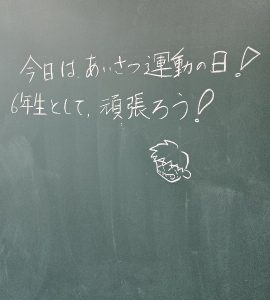 今日は、あいさつ運動の日！
6年生として、頑張ろう！